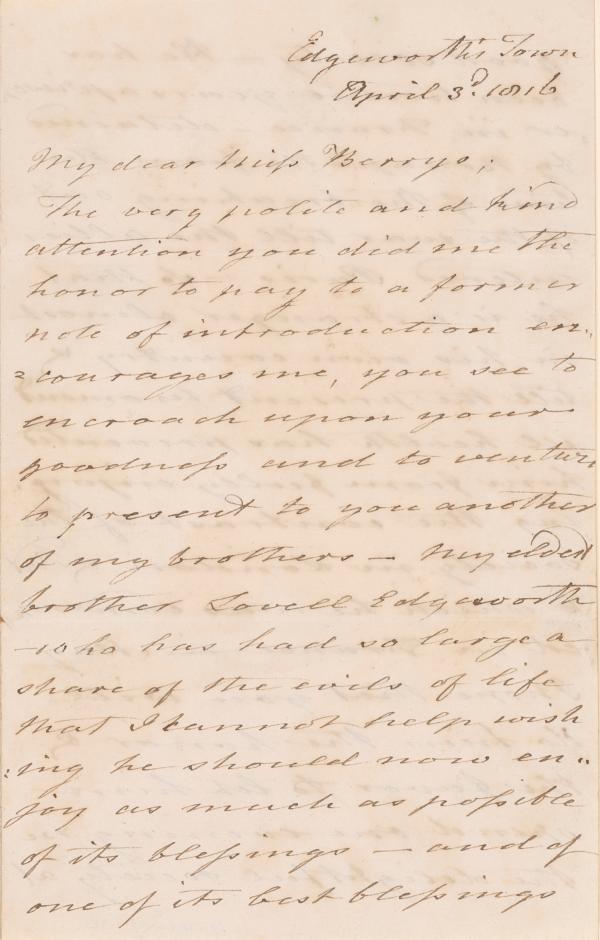 Edgeworth's Town
April 3d. 1816
My dear Miſs Berrys;
The very polite and kind
attention you did me the
honor to pay to a former
note of introduction en„
=courages me, you see to
encroach upon your
goodneſs and to venture
to present to you another
of my brothers — My eldest
brother Lovell Edgeworth
—who has had so large a
share of the evils of life
that I cannot help wish
:ing he should now en„
joy as much as poſsible
of its bleſsings — and of
one of its best bleſsings